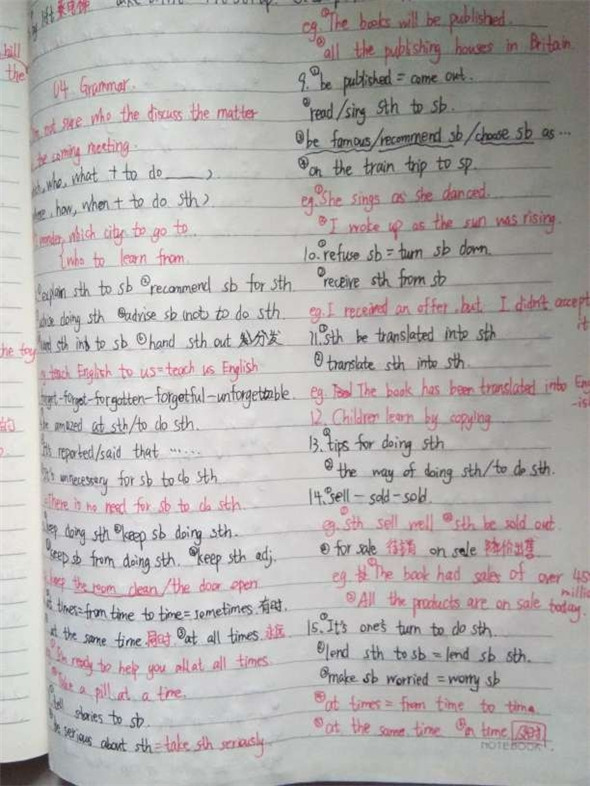 U4 Grammar.
not sure who the discuss the matter
the coming meeting.
who, what + to do
how, when + to do sth)
wonder, which city to go to...
who to learn from.
explain sth to sb ②recommend sb for sth.
doing sth ④advise sb (not) to do sth.
sth to sb ⑥hand sth out 分发
teach English to us = teach us English
forget-forgotten-forgetful-unforgettable.
be amazed at sth/to do sth.
reported/said that ......
unnecessary for sb to do sth
=There is no need for sb to do sth.
keep doing sth ②keep sb doing sth.
keep sb from doing sth. ④keep sth adj.
keep the room clean/the door open
at times=from time to time=sometimes.有时.
at the same time 同时 at all times.
I'm ready to help you at all times.
Take a pill at a time.
tell stories to sb
be serious about sth=take sth seriously.
eg.①The books will be published.
②all the publishing houses in Britain.
9.①be published = come out.
②read/sing sth to sb.
③be famous/recommend sb/choose sb as ...
④on the train trip to sp.
eg.①She sings as she danced.
②I woke up as the sun was rising.
10.①refuse sb = turn sb down.
②receive sth from sb
eg.I received an offer, but I didn't accept
it
11.①sth be translated into sth
②translate sth into sth.
eg. The book has been translated into Eng
-ish
12. Children learn by copying.
13.①tips for doing sth
②the way of doing sth/to do sth.
14.①sell-sold-sold.
eg.①sth sell well ②sth be sold out.
②for sale 待销 on sale 降价出售
eg.①The book had sales of over 45
million
②All the products are on sale today.
15.①It's one's turn to do sth.
②lend sth to sb = lend sb sth.
③make sb worried = worry sb
④at times = from time to time.
⑤at the same time ⑥in time 及时
NOTEBOOK